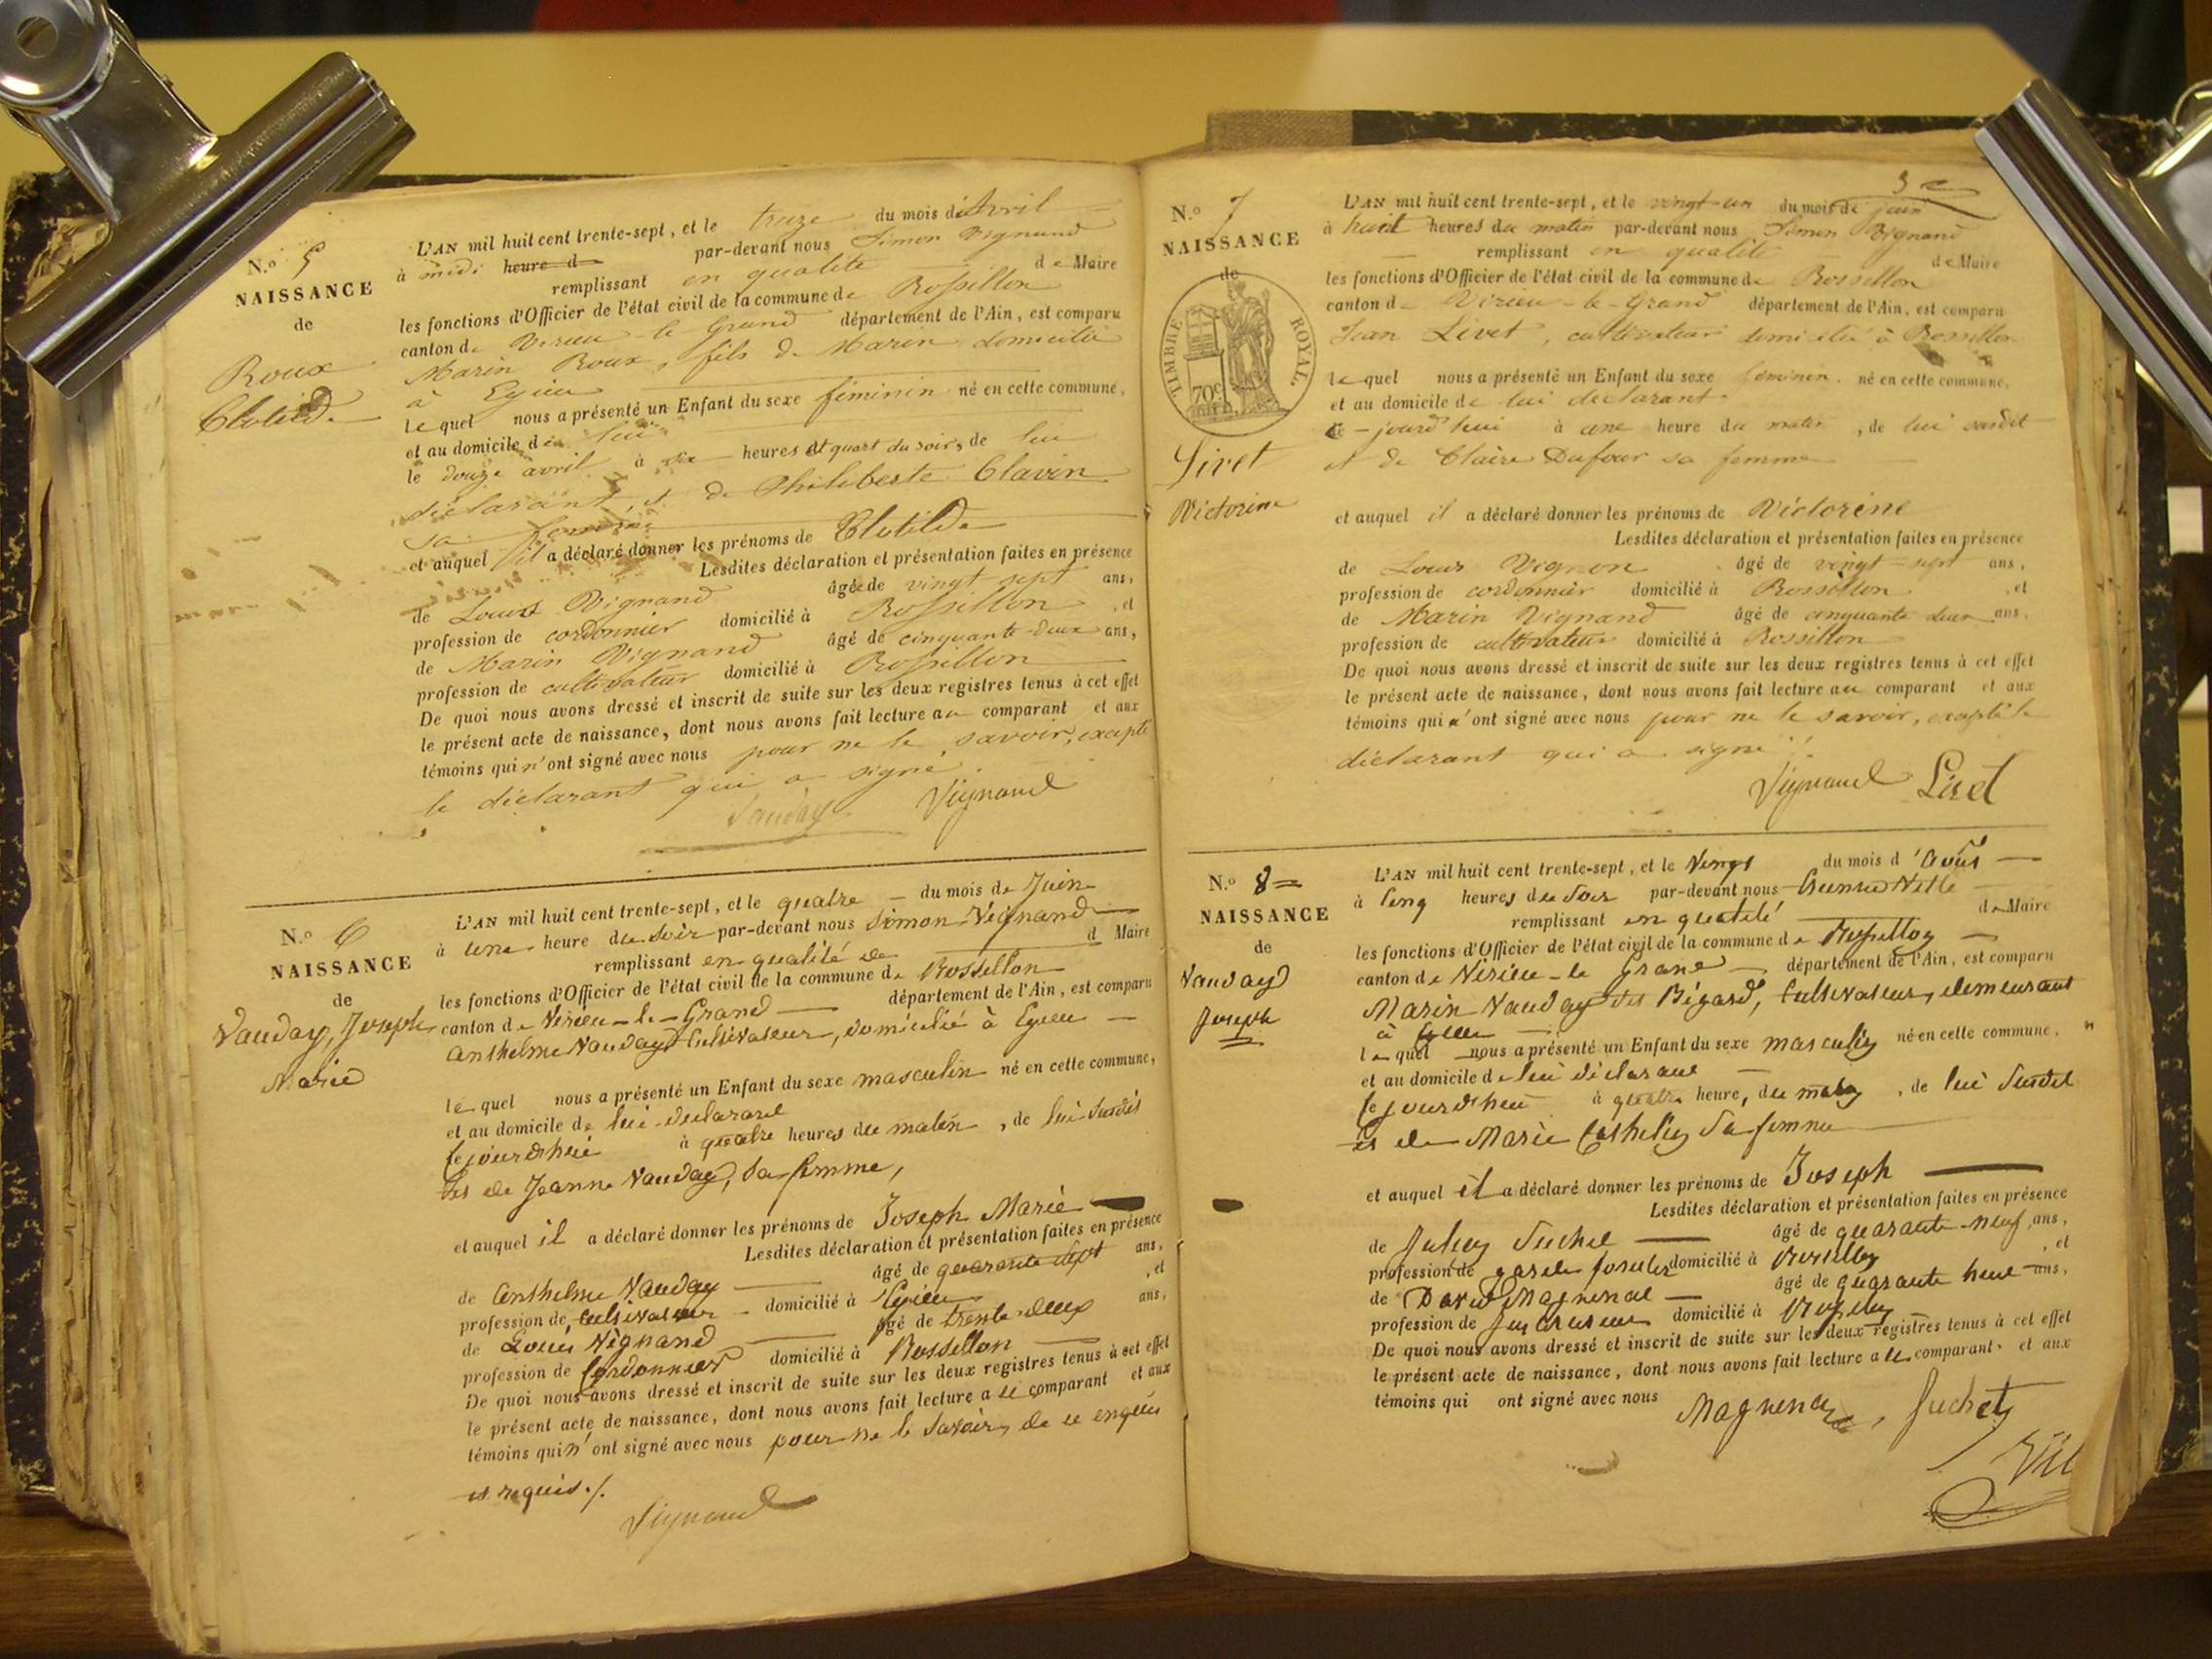 N.o 5
NAISSANCE
de
Roux
Clotilde
L'AN mil huit cent trente-sept, et le treize du mois d'avril
à midi heure d par-devant nous Simon Vignand
remplissant en qualité de Maire
les fonctions d'Officier de l'état civil de la commune de Rossillon
canton de Virieu-le-Grand département de l'Ain, est comparu
Marin Roux, fils de Marin domicilié
à Egieu
lequel nous a présenté un Enfant du sexe féminin né en cette commune,
et au domicile de lui
le douze avril à six heures et quart du soir, de lui
déclarant, et de Philiberte Clavin
sa femme
et auquel il a déclaré donner les prénoms de Clotilde
Lesdites déclaration et présentation faites en présence
de Louis Vignand âgé de vingt sept ans,
profession de cordonnier domicilié à Rossillon, et
de Marin Vignand âgé de cinquante-deux ans,
profession de cultivateur domicilié à Rossillon
De quoi nous avons dressé et inscrit de suite sur les deux registres tenus à cet effet
le présent acte de naissance, dont nous avons fait lecture au comparant et aux
témoins qui n'ont signé avec nous pour ne le savoir, excepté
le déclarant qui a signé.
Vignand
N.o 6
NAISSANCE
de
Vauday, Joseph
Marie
L'AN mil huit cent trente-sept, et le quatre du mois de Juin
à une heure du soir par-devant nous Simon Vignand
remplissant en qualité de d Maire
les fonctions d'Officier de l'état civil de la commune de Rossillon
canton de Virieu-le-Grand département de l'Ain, est comparu
Anthelme Vauday Cultivateur, domicilié à Egieu
lequel nous a présenté un Enfant du sexe masculin né en cette commune,
et au domicile de lui déclarant
cejourd'hui à quatre heures du matin, de lui susdit
et de Jeanne Vauday, sa femme,
et auquel il a déclaré donner les prénoms de Joseph Marie
Lesdites déclaration et présentation faites en présence
de Anthelme Vauday âgé de quarante sept ans,
profession de cultivateur domicilié à Egieu, et
de Louis Vignand âgé de trente-deux ans,
profession de Cordonnier domicilié à Rossillon
De quoi nous avons dressé et inscrit de suite sur les deux registres tenus à cet effet
le présent acte de naissance, dont nous avons fait lecture a le comparant et aux
témoins qui n'ont signé avec nous pour ne le savoir, de ce enquis
et requis./.
Vignand
N.o 7
NAISSANCE
de
TIMBRE ROYAL.
70c
Livet
Victorine
L'AN mil huit cent trente-sept, et le vingt-un du mois de juin
à huit heures du matin par-devant nous Simon Vignand
remplissant en qualité de Maire
les fonctions d'Officier de l'état civil de la commune de Rossillon
canton d Virieu-le-Grand département de l'Ain, est comparu
Jean Livet, cultivateur domicilié à Rossillon
lequel nous a présenté un Enfant du sexe féminin. né en cette commune,
et au domicile de lui déclarant.
ce-jourd'hui à une heure du matin, de lui susdit
et de Claire Dufour sa femme
et auquel il a déclaré donner les prénoms de Victorine
Lesdites déclaration et présentation faites en présence
de Louis Vignon âgé de vingt-sept ans,
profession de cordonnier domicilié à Rossillon, et
de Marin Vignand âgé de cinquante deux ans,
profession de cultivateur domicilié à Rossillon
De quoi nous avons dressé et inscrit de suite sur les deux registres tenus à cet effet
le présent acte de naissance, dont nous avons fait lecture au comparant et aux
témoins qui n'ont signé avec nous pour ne le savoir, excepté le
déclarant qui a signé./.
Vignand Livet
N.o 8
NAISSANCE
de
Vauday
Joseph
L'AN mil huit cent trente-sept, et le Vingt du mois d'Août
à Cinq heures du Soir par-devant nous
remplissant en qualité de Maire
les fonctions d'Officier de l'état civil de la commune de Rossillon
canton de Virieu-le Grand département de l'Ain, est comparu
Marin Vauday dit Bégard, Cultivateur, demeurant
à Egieu
lequel nous a présenté un Enfant du sexe masculin né en cette commune,
et au domicile de lui déclarant
cejourd'hui à quatre heure, du matin, de lui susdit
et de Marie sa femme
et auquel il a déclaré donner les prénoms de Joseph
Lesdites déclaration et présentation faites en présence
de Julien Suchet âgé de quarante-neuf ans,
profession de garde forestier domicilié à Rossillon, et
de David Magnenat âgé de quarante huit ans,
profession de domicilié à Rossillon
De quoi nous avons dressé et inscrit de suite sur les deux registres tenus à cet effet
le présent acte de naissance, dont nous avons fait lecture a le comparant et aux
témoins qui ont signé avec nous
Magnenat, Suchet